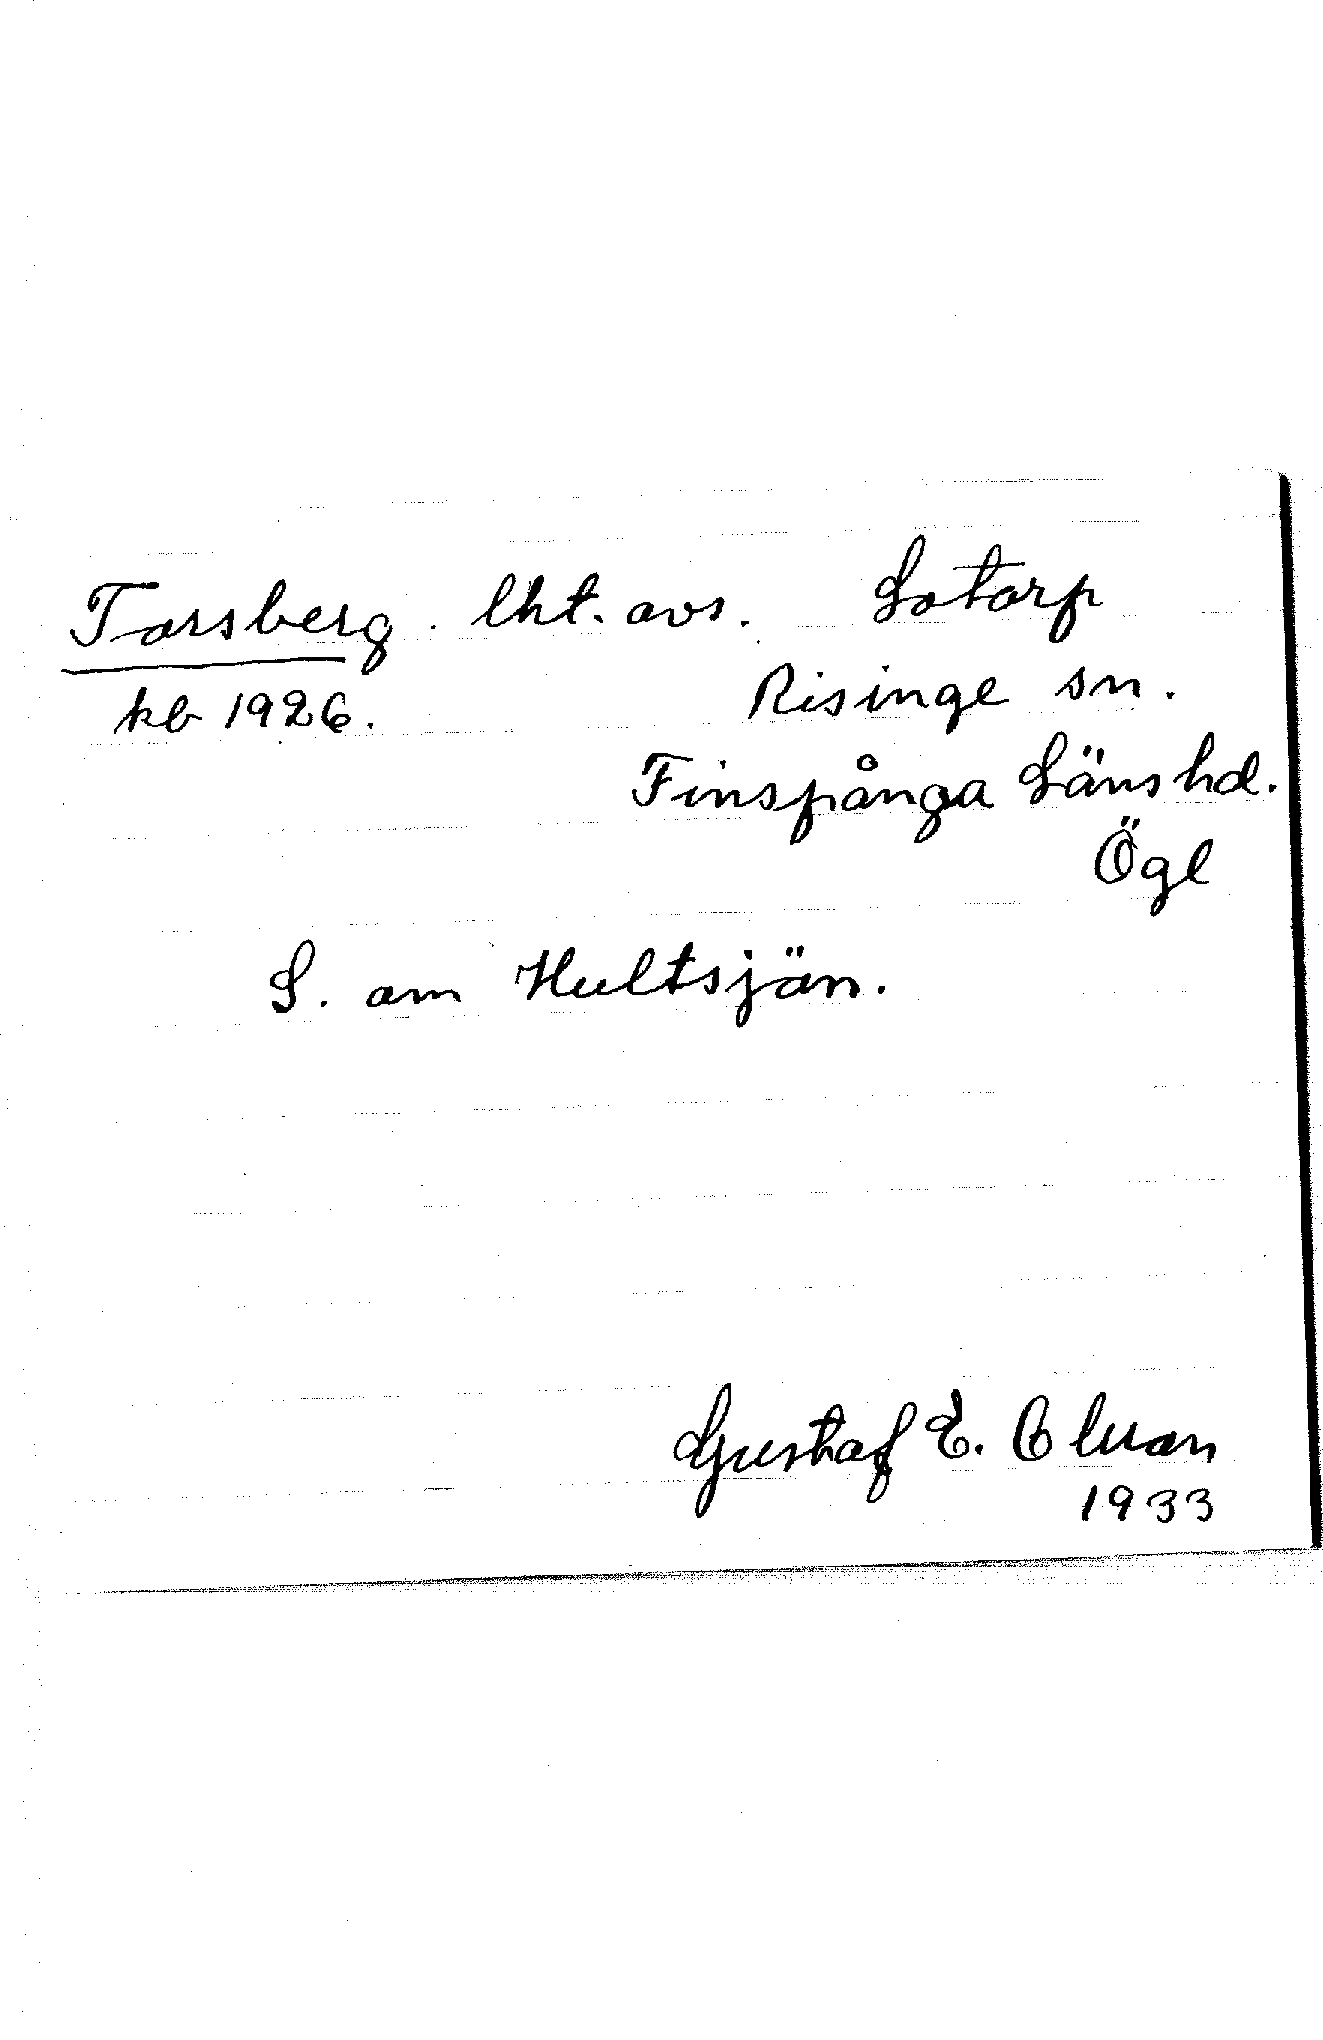 Torsberg. lht. avs. Lotorp
kb 1926. Risinge sn.
Finspånga Länshd.
Ögl
S. om Hultsjön.
Gustaf E. Olsson
1933